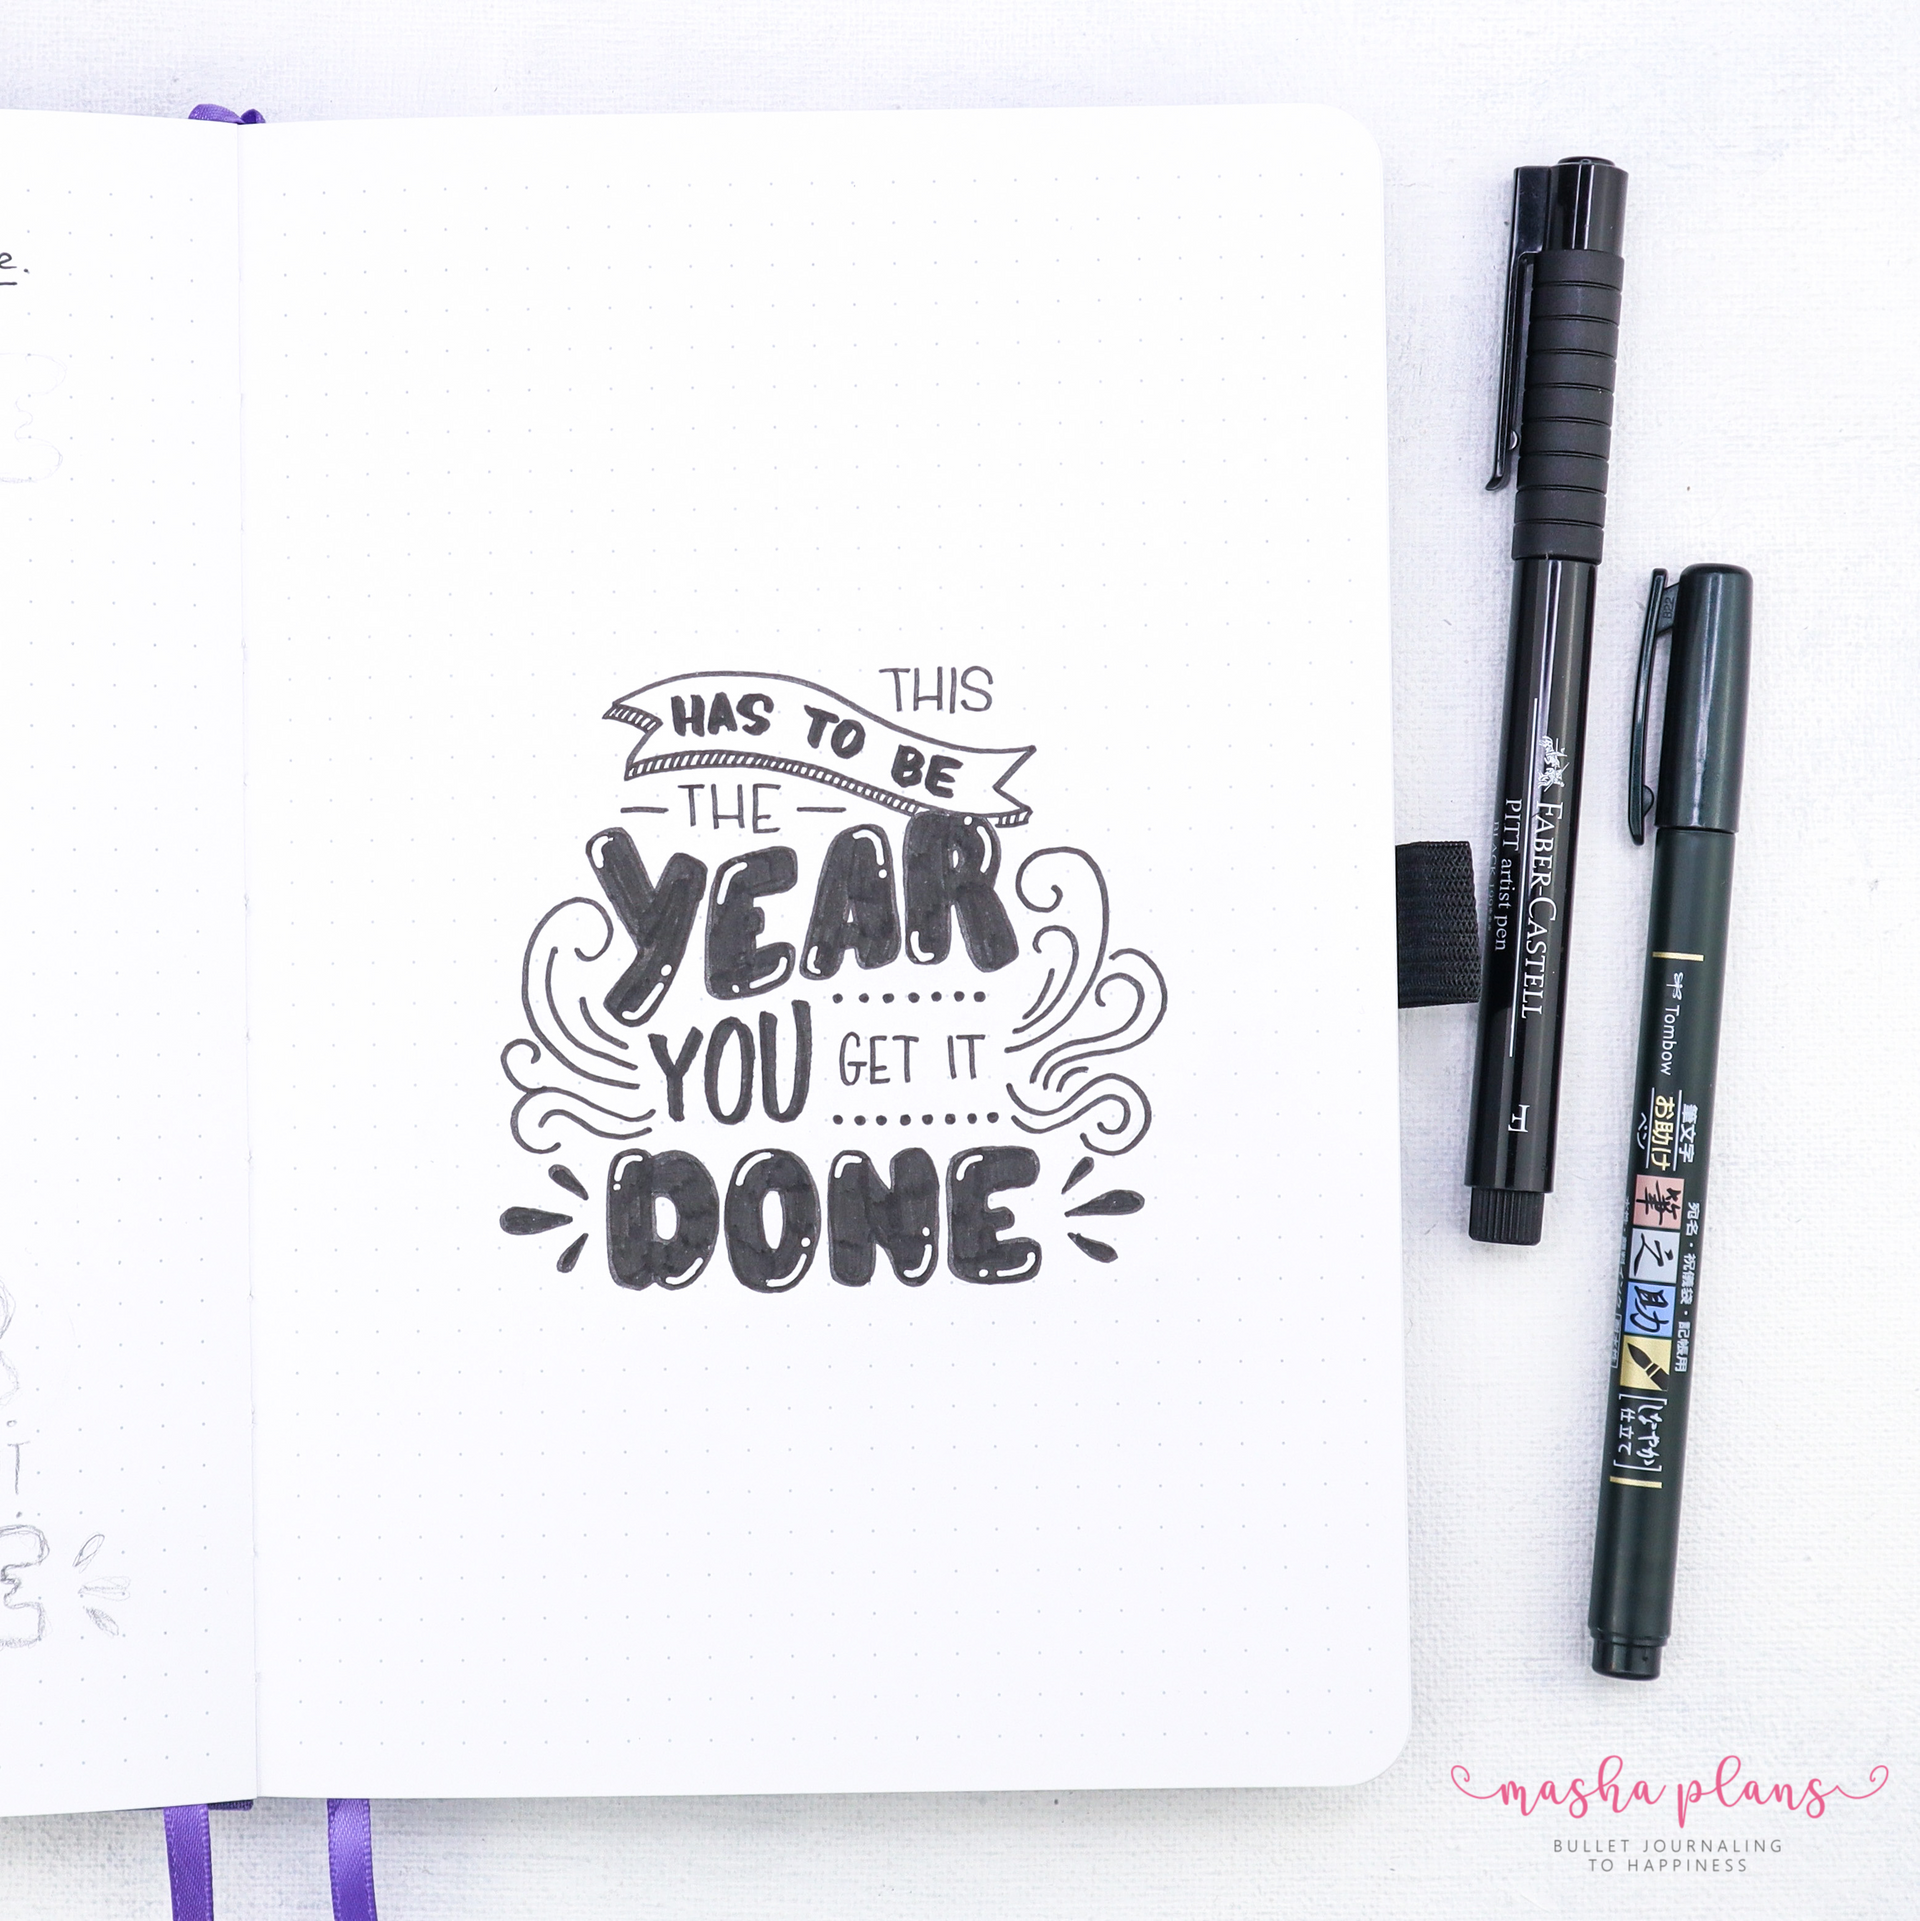 e.
THIS
HAS TO BE
THE
YEAR
YOU GET IT
DONE
T
E
FABER-CASTELL
PITT artist pen
Tombow
筆文字
お助け
ペン
筆之助
宛名・祝儀袋・記帳用
[しなやか]
仕立て
masha plans
BULLET JOURNALING
TO HAPPINESS